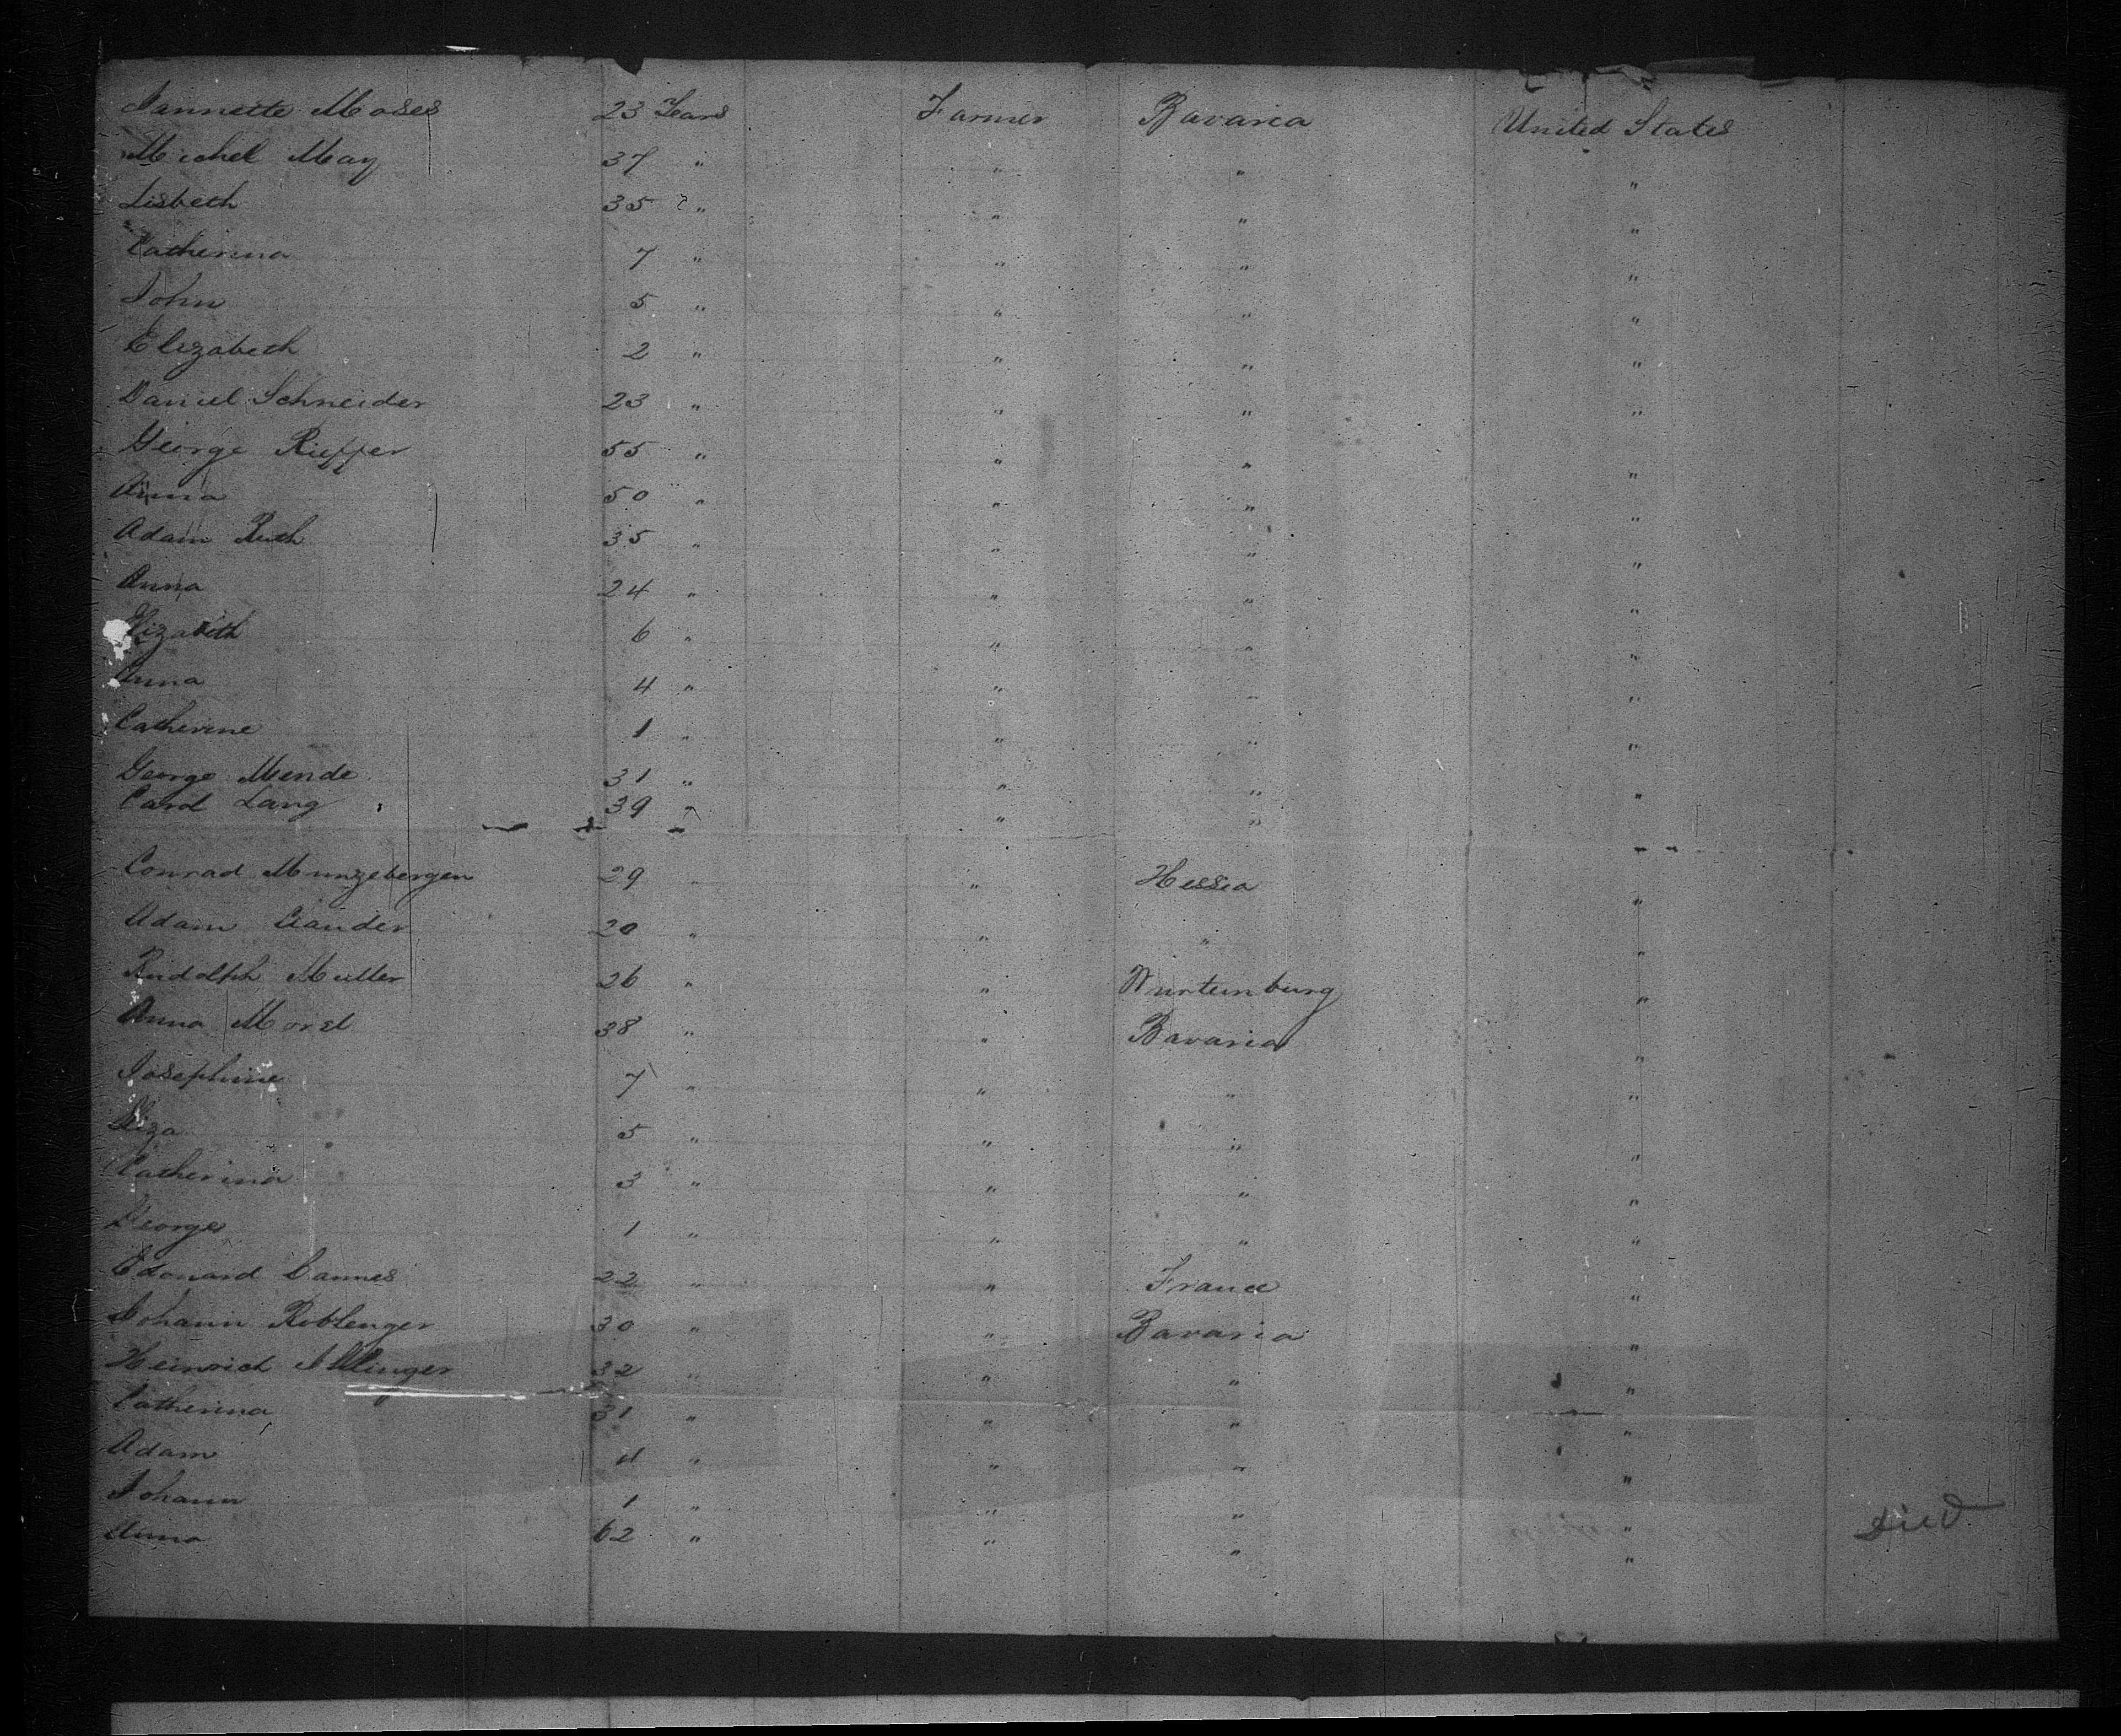 Jannette Moses 23 Years Farmer Bavaria United States
Michel May 37 " " " "
Lisbeth 35 " " " "
Catherina 7 " " " "
John 5 " " " "
Elizabeth 2 " " " "
Daniel Schneider 23 " " " "
George Rieffer 55 " " " "
Anna 50 " " " "
Adam Ruth 35 " " " "
Anna 24 " " " "
Elizabeth 6 " " " "
Anna 4 " " " "
Catherine 1 " " " "
George Mende 31 " " " "
Carl Lang 39 " " "
Conrad Munzebergen 29 " Hessia "
Adam 20 " " " "
Rudolph Muller 26 " " Wurtemburg "
Anna Morel 38 " " Bavaria "
Josephine 7 " " " "
Eliza 5 " " " "
Catherina 3 " " " "
George 1 " " " "
Edouard Cannes 22 " " France "
Johann 30 " " Bavaria "
Heinrich 32 " " " "
Catherina 31 " " " "
Adam 4 " " " "
Johann 1 " " " " Died
Anna 62 " " " "